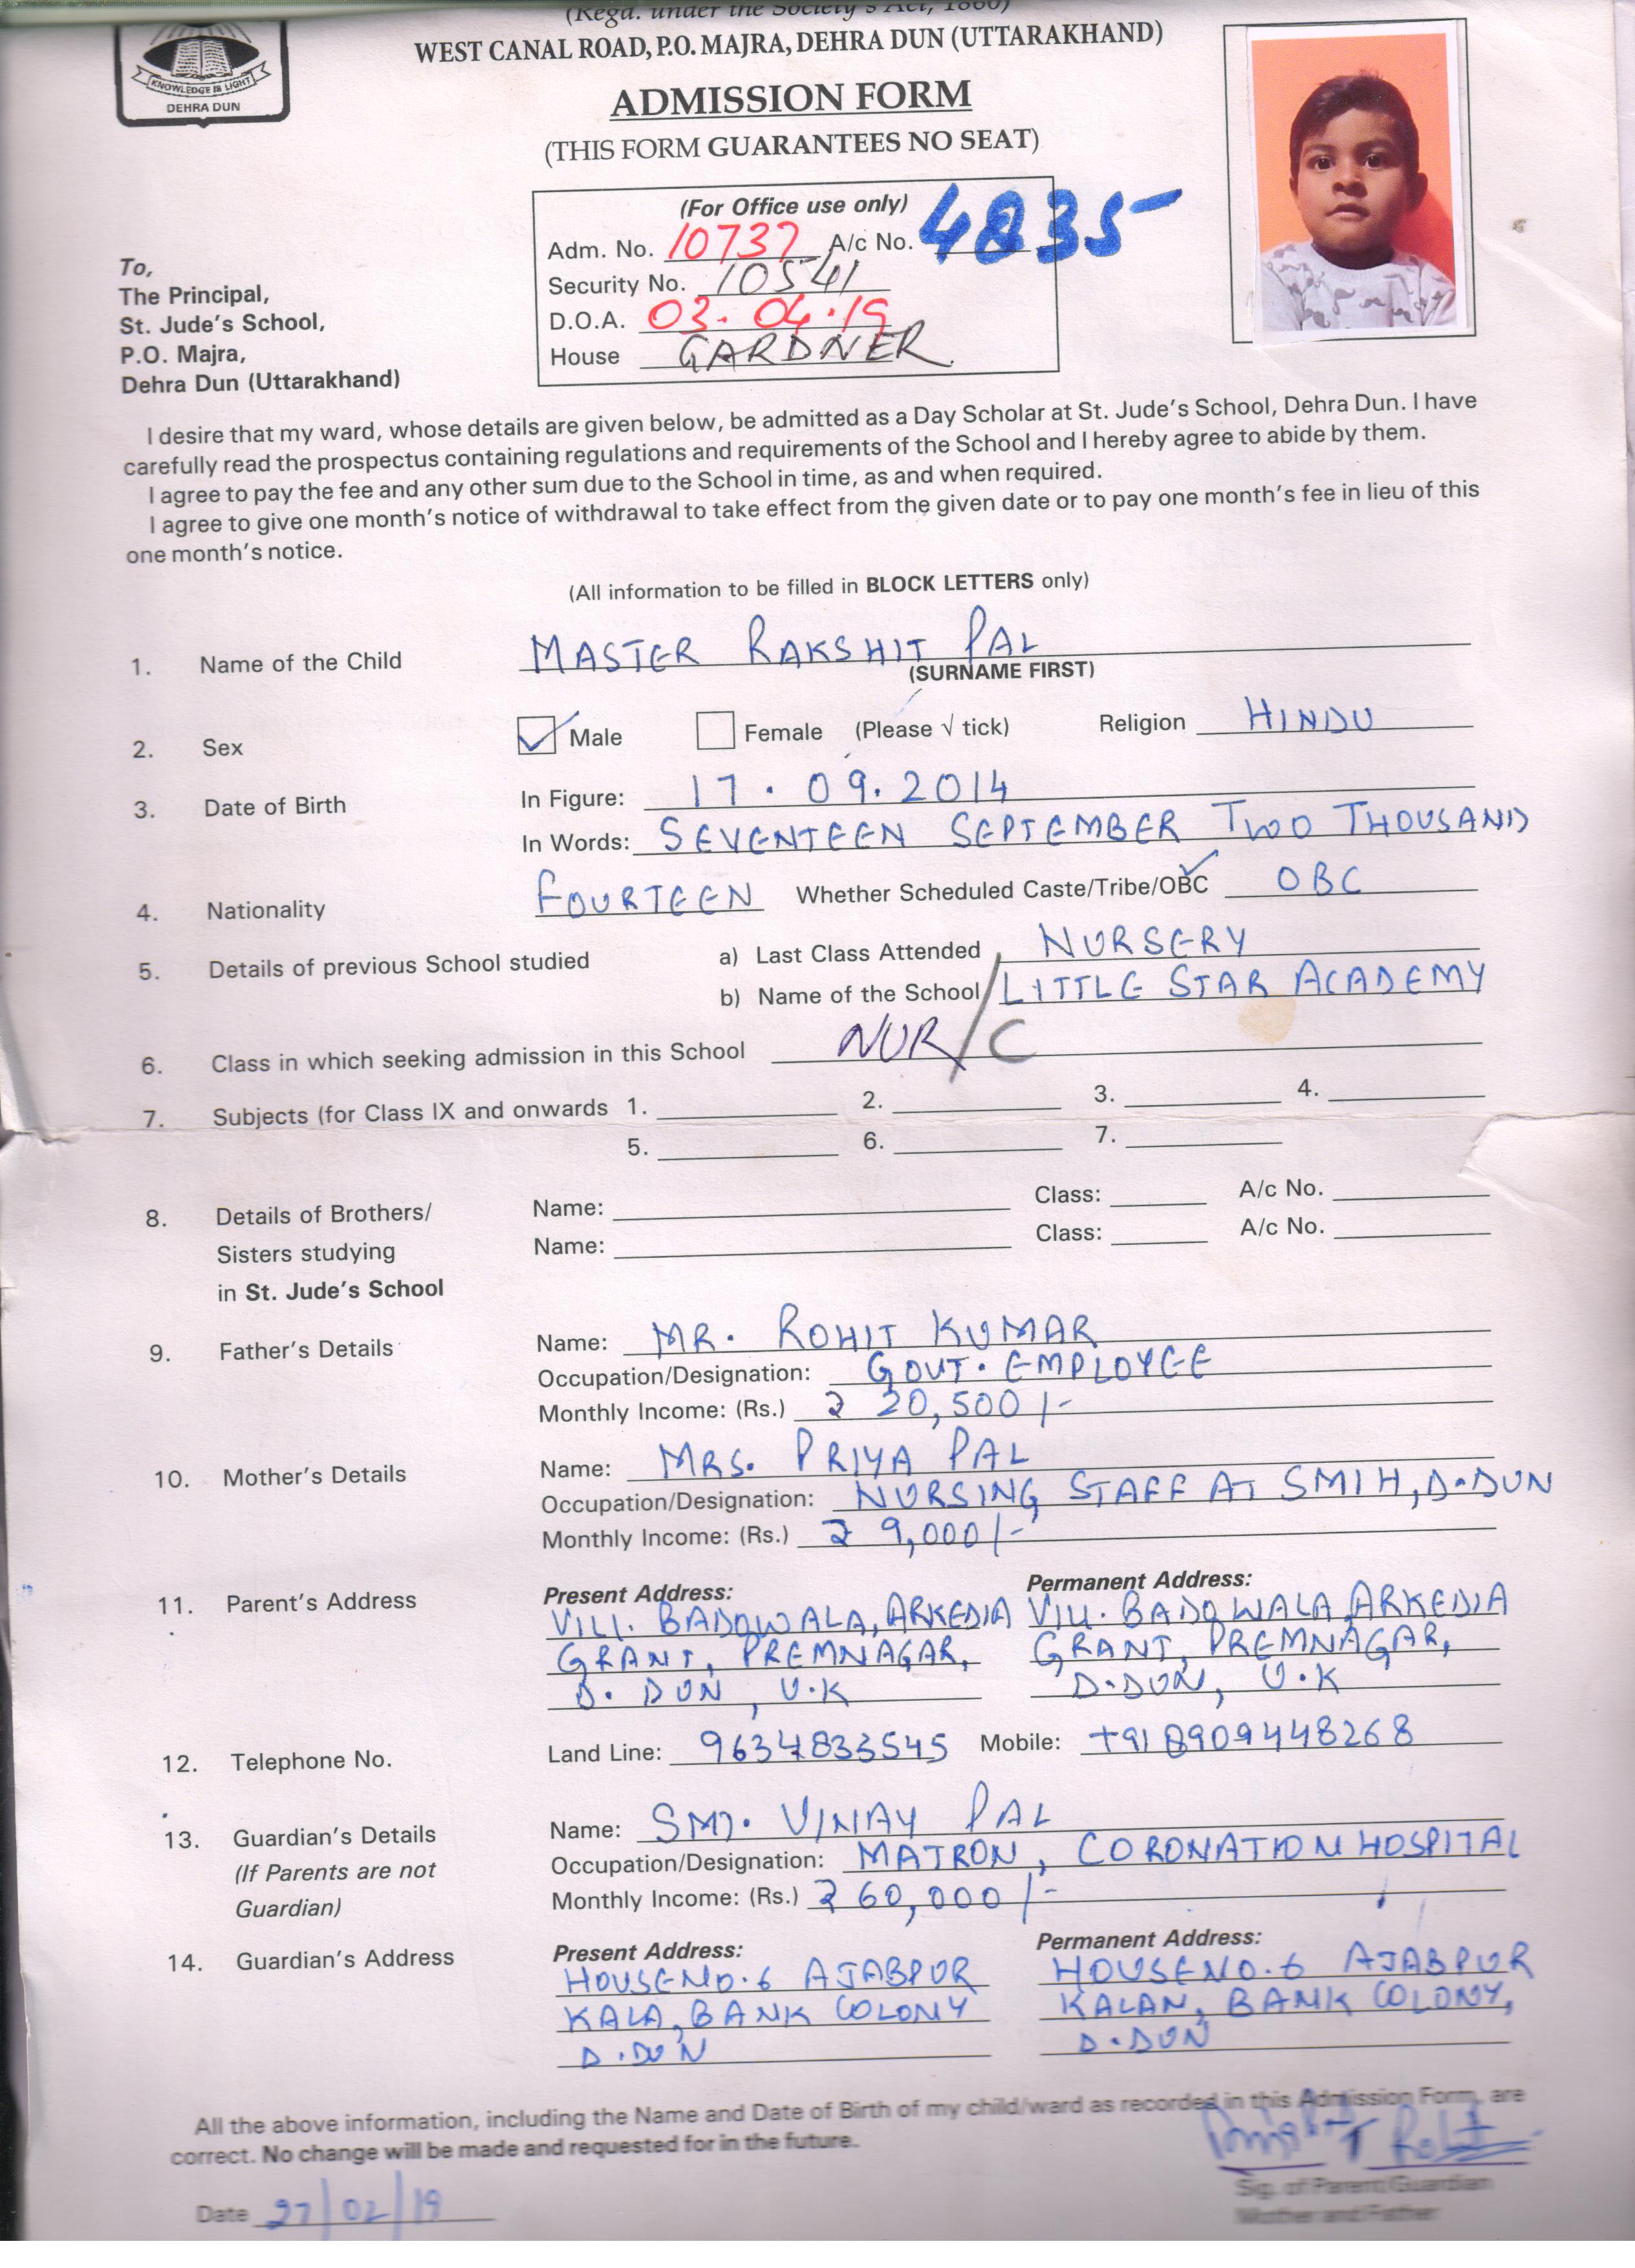 (Regd. under the Society's Act, 1860)
WEST CANAL ROAD, P.O. MAJRA, DEHRA DUN (UTTARAKHAND)
KNOWLEDGE IS LIGHT
DEHRA DUN
ADMISSION FORM
(THIS FORM GUARANTEES NO SEAT)
(For Office use only)
Adm. No. 10737 A/c No. 4835
Security No. 10541
D.O.A. 03.04.19
House GARDNER
To,
The Principal,
St. Jude's School,
P.O. Majra,
Dehra Dun (Uttarakhand)
I desire that my ward, whose details are given below, be admitted as a Day Scholar at St. Jude's School, Dehra Dun. I have
carefully read the prospectus containing regulations and requirements of the School and I hereby agree to abide by them.
I agree to pay the fee and any other sum due to the School in time, as and when required.
I agree to give one month's notice of withdrawal to take effect from the given date or to pay one month's fee in lieu of this
one month's notice.
(All information to be filled in BLOCK LETTERS only)
1. Name of the Child MASTER RAKSHIT PAL
(SURNAME FIRST)
2. Sex Male Female (Please √ tick) Religion HINDU
3. Date of Birth In Figure: 17.09.2014
In Words: SEVENTEEN SEPTEMBER TWO THOUSAND
4. Nationality FOURTEEN Whether Scheduled Caste/Tribe/OBC OBC
5. Details of previous School studied a) Last Class Attended NURSERY
b) Name of the School LITTLE STAR ACADEMY
6. Class in which seeking admission in this School NUR/C
7. Subjects (for Class IX and onwards 1. 2. 3. 4.
5. 6. 7.
8. Details of Brothers/ Name: Class: A/c No.
Sisters studying Name: Class: A/c No.
in St. Jude's School
9. Father's Details Name: MR. ROHIT KUMAR
Occupation/Designation: GOVT. EMPLOYEE
Monthly Income: (Rs.) ₹ 20,500/-
10. Mother's Details Name: MRS. PRIYA PAL
Occupation/Designation: NURSING STAFF AT SMIH, D.DUN
Monthly Income: (Rs.) ₹ 9,000/-
11. Parent's Address Present Address: Permanent Address:
VILL. BADOWALA, ARKEDIA VILL. BADOWALA, ARKEDIA
GRANT, PREMNAGAR, GRANT, PREMNAGAR,
D. DUN, U.K D.DUN, U.K
12. Telephone No. Land Line: 9634833545 Mobile: +91 8909448268
13. Guardian's Details Name: SMT. VINAY PAL
(If Parents are not Occupation/Designation: MATRON, CORONATION HOSPITAL
Guardian) Monthly Income: (Rs.) ₹ 60,000/-
14. Guardian's Address Present Address: Permanent Address:
HOUSE NO. 6 AJABPUR HOUSE NO. 6 AJABPUR
KALA, BANK COLONY KALAN, BANK COLONY,
D.DUN D.DUN
All the above information, including the Name and Date of Birth of my child/ward as recorded in this Admission Form, are
correct. No change will be made and requested for in the future.
Sig. of Parent/Guardian
Mother and Father
Date 27/02/19